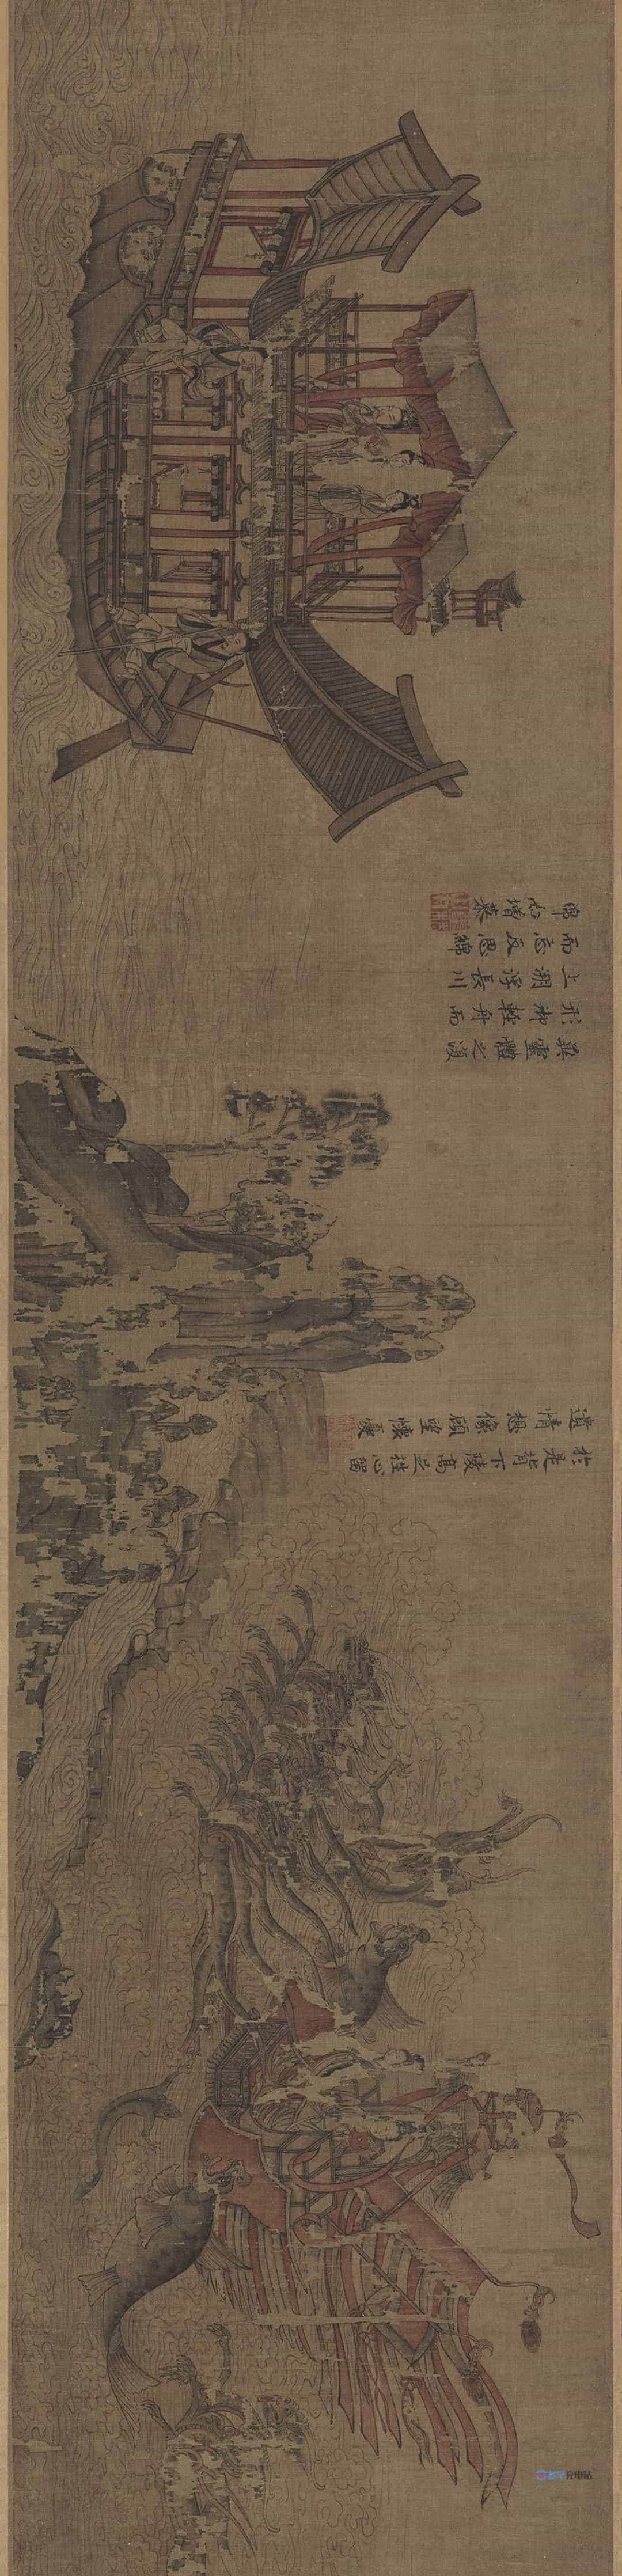 於是背下陵高足往心留
遺情想像顧望懷憂
冀靈體之復
形御輕舟而
上溯浮長川
而忘反思綿
綿而增慕
充电站